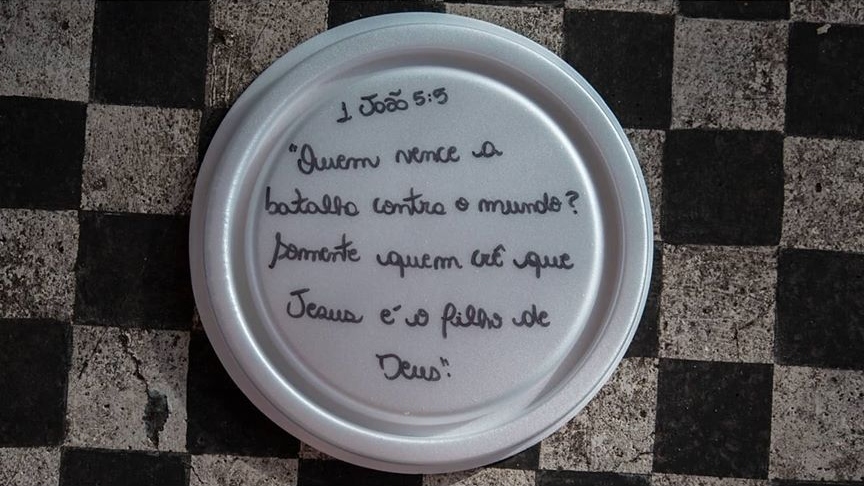 1 João 5:5
"Quem vence a
batalha contra o mundo?
Somente quem crê que
Jesus é o filho de
Deus".